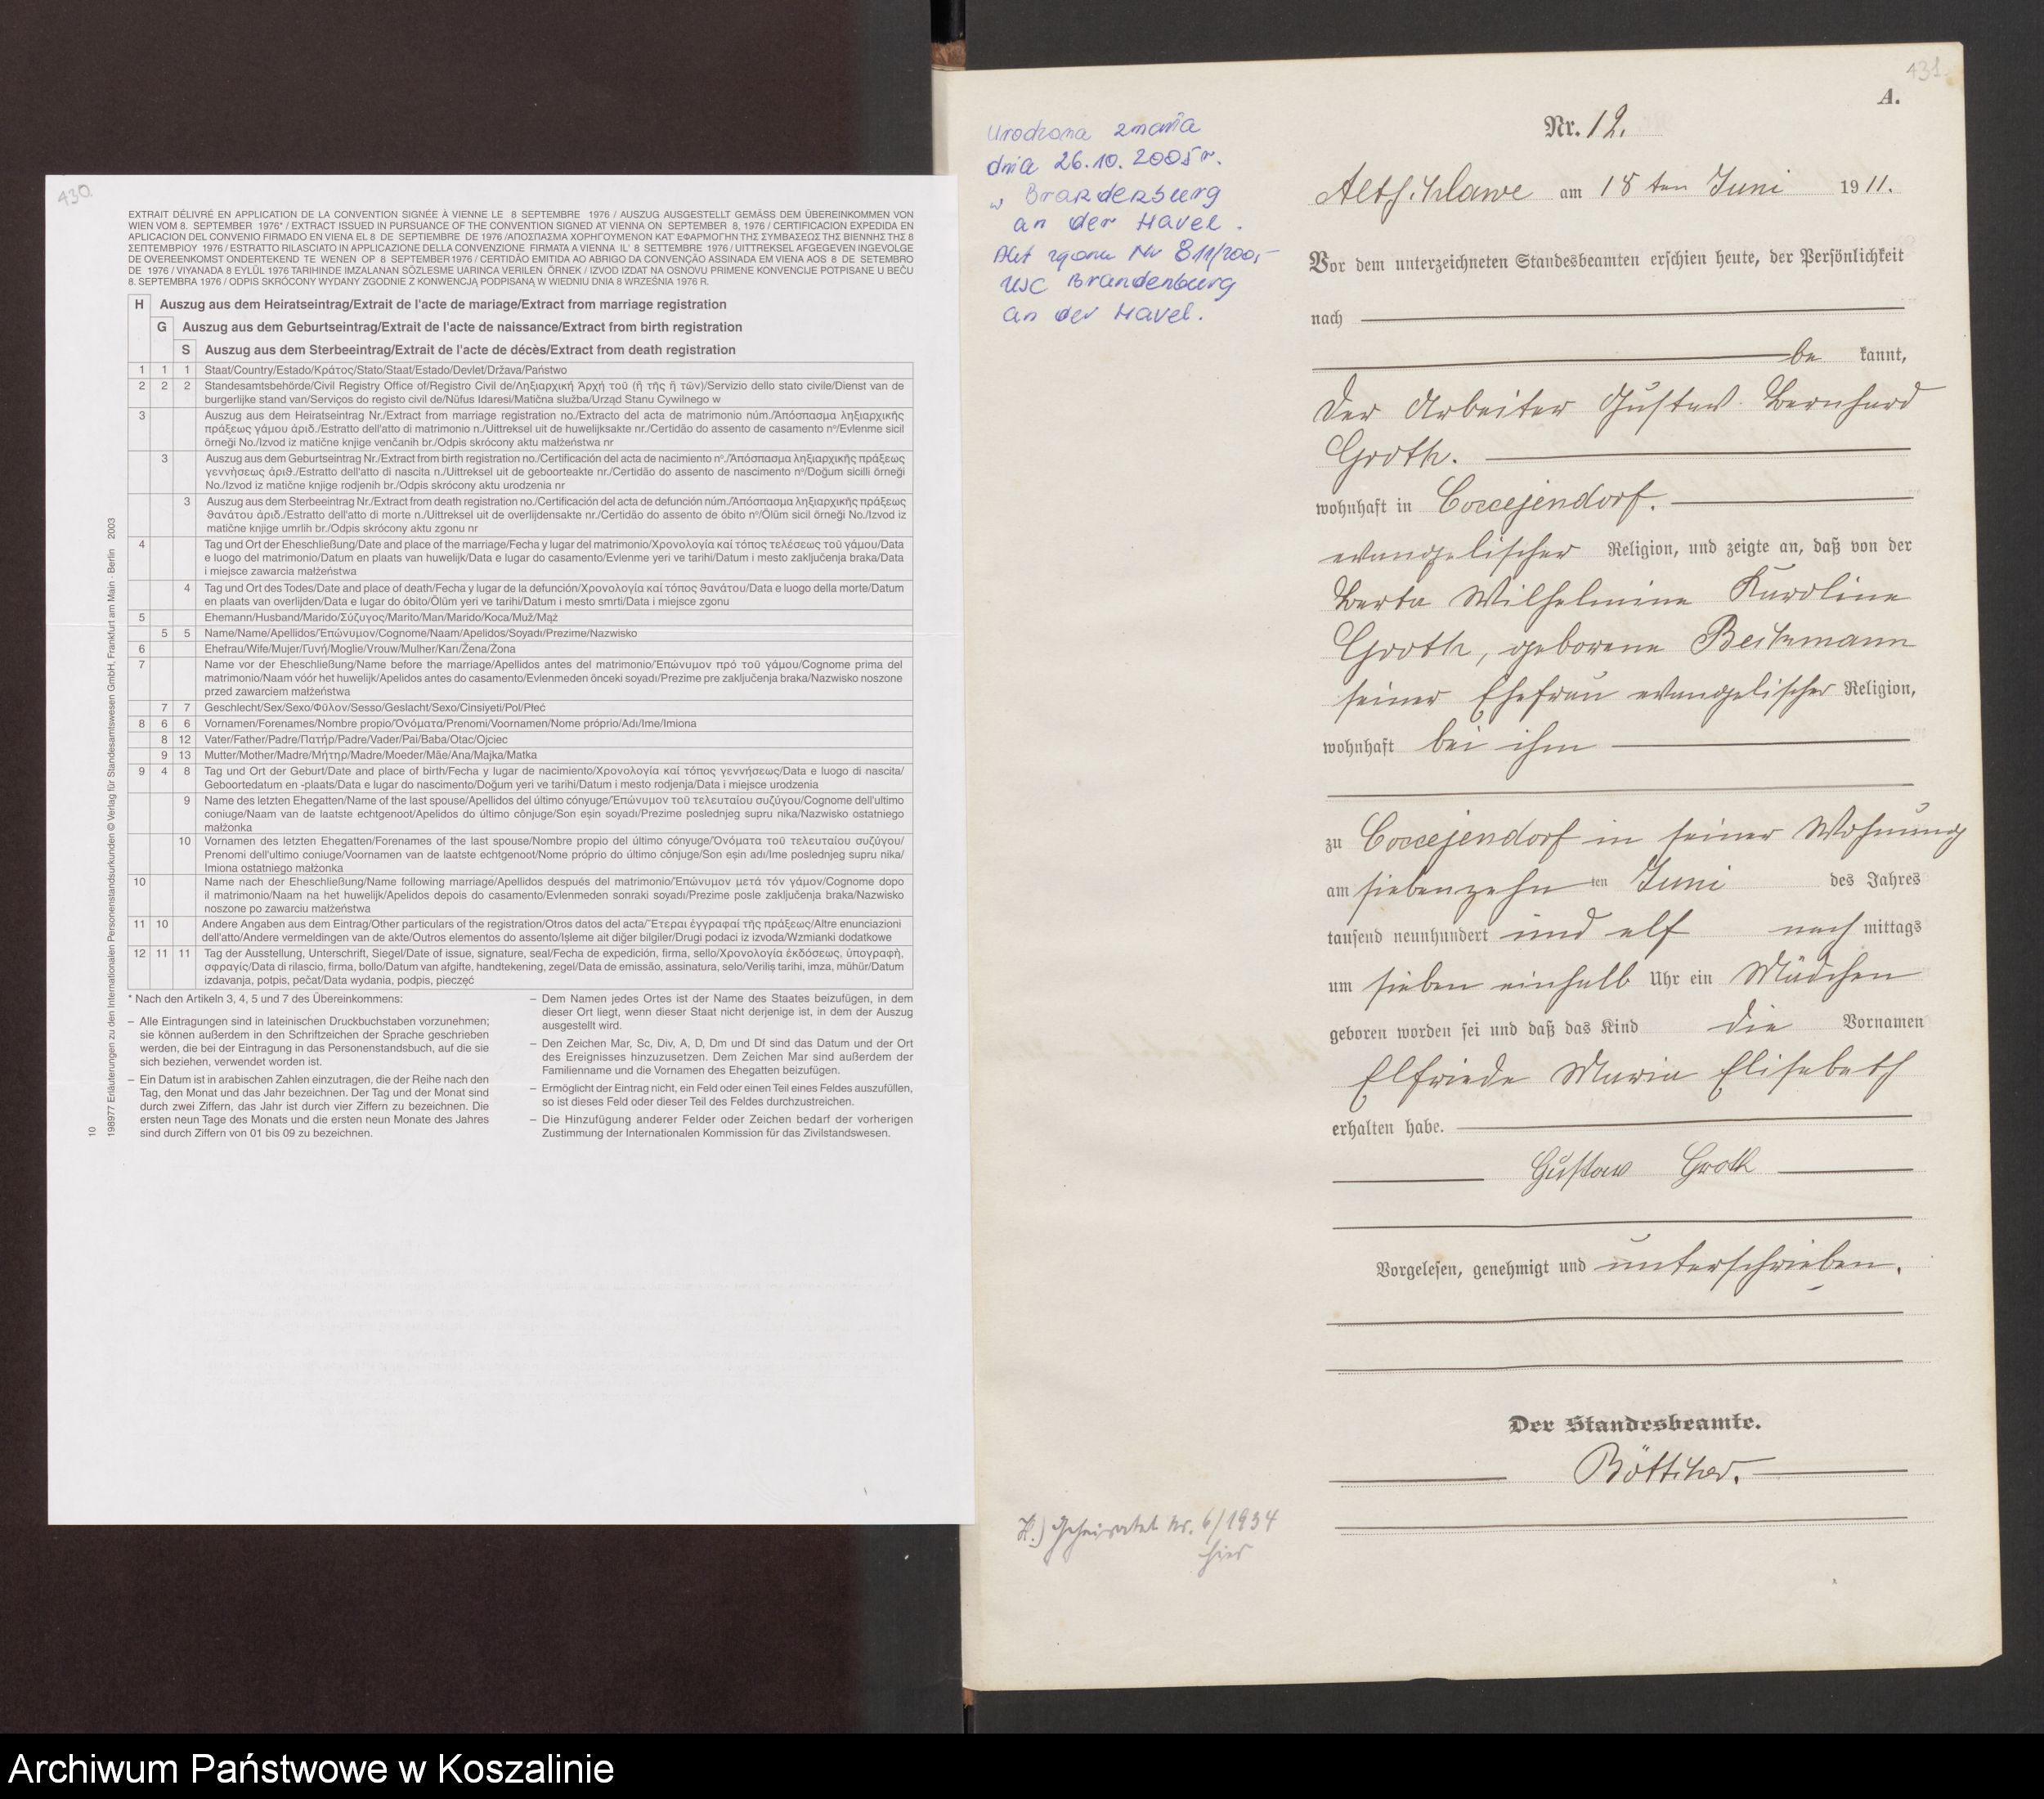 430.
EXTRAIT DÉLIVRÉ EN APPLICATION DE LA CONVENTION SIGNÉE À VIENNE LE 8 SEPTEMBRE 1976 / AUSZUG AUSGESTELLT GEMÄSS DEM ÜBEREINKOMMEN VON
WIEN VOM 8. SEPTEMBER 1976* / EXTRACT ISSUED IN PURSUANCE OF THE CONVENTION SIGNED AT VIENNA ON SEPTEMBER 8, 1976 / CERTIFICACION EXPEDIDA EN
APLICACION DEL CONVENIO FIRMADO EN VIENA EL 8 DE SEPTIEMBRE DE 1976 /ΑΠΟΣΠΑΣΜΑ ΧΟΡΗΓΟΥΜΕΝΟΝ ΚΑΤ' ΕΦΑΡΜΟΓΗΝ ΤΗΣ ΣΥΜΒΑΣΕΩΣ ΤΗΣ ΒΙΕΝΝΗΣ ΤΗΣ 8
ΣΕΠΤΕΜΒΡΙΟΥ 1976 / ESTRATTO RILASCIATO IN APPLICAZIONE DELLA CONVENZIONE FIRMATA A VIENNA IL' 8 SETTEMBRE 1976 / UITTREKSEL AFGEGEVEN INGEVOLGE
DE OVEREENKOMST ONDERTEKEND TE WENEN OP 8 SEPTEMBER 1976 / CERTIDÃO EMITIDA AO ABRIGO DA CONVENÇÃO ASSINADA EM VIENA AOS 8 DE SETEMBRO
DE 1976 / VIYANADA 8 EYLÜL 1976 TARIHINDE IMZALANAN SÖZLESME UARINCA VERILEN ÖRNEK / IZVOD IZDAT NA OSNOVU PRIMENE KONVENCIJE POTPISANE U BEČU
8. SEPTEMBRA 1976 / ODPIS SKRÓCONY WYDANY ZGODNIE Z KONWENCJĄ PODPISANĄ W WIEDNIU DNIA 8 WRZEŚNIA 1976 R.
H Auszug aus dem Heiratseintrag/Extrait de l'acte de mariage/Extract from marriage registration
G Auszug aus dem Geburtseintrag/Extrait de l'acte de naissance/Extract from birth registration
S Auszug aus dem Sterbeeintrag/Extrait de l'acte de décès/Extract from death registration
1 1 1 Staat/Country/Estado/Κράτος/Stato/Staat/Estado/Devlet/Država/Państwo
2 2 2 Standesamtsbehörde/Civil Registry Office of/Registro Civil de/Ληξιαρχική Ἀρχή τοῦ (ἤ τῆς ἤ τῶν)/Servizio dello stato civile/Dienst van de
burgerlijke stand van/Serviços do registo civil de/Nüfus Idaresi/Matična služba/Urząd Stanu Cywilnego w
3 Auszug aus dem Heiratseintrag Nr./Extract from marriage registration no./Extracto del acta de matrimonio núm./Ἀπόσπασμα ληξιαρχικῆς
πράξεως γάμου ἀριδ./Estratto dell'atto di matrimonio n./Uittreksel uit de huwelijksakte nr./Certidão do assento de casamento nº/Evlenme sicil
örneği No./Izvod iz matične knjige venčanih br./Odpis skrócony aktu małżeństwa nr
3 Auszug aus dem Geburtseintrag Nr./Extract from birth registration no./Certificación del acta de nacimiento nº./Ἀπόσπασμα ληξιαρχικῆς πράξεως
γεννήσεως ἀριθ./Estratto dell'atto di nascita n./Uittreksel uit de geboorteakte nr./Certidão do assento de nascimento nº/Doğum sicilli örneği
No./Izvod iz matične knjige rodjenih br./Odpis skrócony aktu urodzenia nr
3 Auszug aus dem Sterbeeintrag Nr./Extract from death registration no./Certificación del acta de defunción núm./Ἀπόσπασμα ληξιαρχικῆς πράξεως
θανάτου ἀριδ./Estratto dell'atto di morte n./Uittreksel uit de overlijdensakte nr./Certidão do assento de óbito nº/Ölüm sicil örneği No./Izvod iz
matične knjige umrlih br./Odpis skrócony aktu zgonu nr
4 Tag und Ort der Eheschließung/Date and place of the marriage/Fecha y lugar del matrimonio/Χρονολογία καί τόπος τελέσεως τοῦ γάμου/Data
e luogo del matrimonio/Datum en plaats van huwelijk/Data e lugar do casamento/Evlenme yeri ve tarihi/Datum i mesto zaključenja braka/Data
i miejsce zawarcia małżeństwa
4 Tag und Ort des Todes/Date and place of death/Fecha y lugar de la defunción/Χρονολογία καί τόπος θανάτου/Data e luogo della morte/Datum
en plaats van overlijden/Data e lugar do óbito/Ölüm yeri ve tarihi/Datum i mesto smrti/Data i miejsce zgonu
5 Ehemann/Husband/Marido/Σύζυγος/Marito/Man/Marido/Koca/Muž/Mąż
5 5 Name/Name/Apellidos/Ἐπώνυμον/Cognome/Naam/Apelidos/Soyadı/Prezime/Nazwisko
6 Ehefrau/Wife/Mujer/Γυνή/Moglie/Vrouw/Mulher/Karı/Žena/Żona
7 Name vor der Eheschließung/Name before the marriage/Apellidos antes del matrimonio/Ἐπώνυμον πρό τοῦ γάμου/Cognome prima del
matrimonio/Naam vóór het huwelijk/Apelidos antes do casamento/Evlenmeden önceki soyadı/Prezime pre zaključenja braka/Nazwisko noszone
przed zawarciem małżeństwa
7 7 Geschlecht/Sex/Sexo/Φῦλον/Sesso/Geslacht/Sexo/Cinsiyeti/Pol/Płeć
8 6 6 Vornamen/Forenames/Nombre propio/Ὀνόματα/Prenomi/Voornamen/Nome próprio/Adı/Ime/Imiona
8 12 Vater/Father/Padre/Πατήρ/Padre/Vader/Pai/Baba/Otac/Ojciec
9 13 Mutter/Mother/Madre/Μήτηρ/Madre/Moeder/Mãe/Ana/Majka/Matka
9 4 8 Tag und Ort der Geburt/Date and place of birth/Fecha y lugar de nacimiento/Χρονολογία καί τόπος γεννήσεως/Data e luogo di nascita/
Geboortedatum en -plaats/Data e lugar do nascimento/Doğum yeri ve tarihi/Datum i mesto rodjenja/Data i miejsce urodzenia
9 Name des letzten Ehegatten/Name of the last spouse/Apellidos del último cónyuge/Ἐπώνυμον τοῦ τελευταίου συζύγου/Cognome dell'ultimo
coniuge/Naam van de laatste echtgenoot/Apelidos do último cônjuge/Son eşin soyadı/Prezime poslednjeg supru nika/Nazwisko ostatniego
małżonka
10 Vornamen des letzten Ehegatten/Forenames of the last spouse/Nombre propio del último cónyuge/Ὀνόματα τοῦ τελευταίου συζύγου/
Prenomi dell'ultimo coniuge/Voornamen van de laatste echtgenoot/Nome próprio do último cônjuge/Son eşin adı/Ime poslednjeg supru nika/
Imiona ostatniego małżonka
10 Name nach der Eheschließung/Name following marriage/Apellidos después del matrimonio/Ἐπώνυμον μετά τόν γάμον/Cognome dopo
il matrimonio/Naam na het huwelijk/Apelidos depois do casamento/Evlenmeden sonraki soyadı/Prezime posle zaključenja braka/Nazwisko
noszone po zawarciu małżeństwa
11 10 Andere Angaben aus dem Eintrag/Other particulars of the registration/Otros datos del acta/Ἕτεραι ἐγγραφαί τῆς πράξεως/Altre enunciazioni
dell'atto/Andere vermeldingen van de akte/Outros elementos do assento/Işleme ait diğer bilgiler/Drugi podaci iz izvoda/Wzmianki dodatkowe
12 11 11 Tag der Ausstellung, Unterschrift, Siegel/Date of issue, signature, seal/Fecha de expedición, firma, sello/Χρονολογία ἐκδόσεως, ὑπογραφή,
σφραγίς/Data di rilascio, firma, bollo/Datum van afgifte, handtekening, zegel/Data de emissão, assinatura, selo/Veriliş tarihi, imza, mühür/Datum
izdavanja, potpis, pečat/Data wydania, podpis, pieczęć
* Nach den Artikeln 3, 4, 5 und 7 des Übereinkommens:
– Alle Eintragungen sind in lateinischen Druckbuchstaben vorzunehmen;
sie können außerdem in den Schriftzeichen der Sprache geschrieben
werden, die bei der Eintragung in das Personenstandsbuch, auf die sie
sich beziehen, verwendet worden ist.
– Ein Datum ist in arabischen Zahlen einzutragen, die der Reihe nach den
Tag, den Monat und das Jahr bezeichnen. Der Tag und der Monat sind
durch zwei Ziffern, das Jahr ist durch vier Ziffern zu bezeichnen. Die
ersten neun Tage des Monats und die ersten neun Monate des Jahres
sind durch Ziffern von 01 bis 09 zu bezeichnen.
– Dem Namen jedes Ortes ist der Name des Staates beizufügen, in dem
dieser Ort liegt, wenn dieser Staat nicht derjenige ist, in dem der Auszug
ausgestellt wird.
– Den Zeichen Mar, Sc, Div, A, D, Dm und Df sind das Datum und der Ort
des Ereignisses hinzuzusetzen. Dem Zeichen Mar sind außerdem der
Familienname und die Vornamen des Ehegatten beizufügen.
– Ermöglicht der Eintrag nicht, ein Feld oder einen Teil eines Feldes auszufüllen,
so ist dieses Feld oder dieser Teil des Feldes durchzustreichen.
– Die Hinzufügung anderer Felder oder Zeichen bedarf der vorherigen
Zustimmung der Internationalen Kommission für das Zivilstandswesen.
10
198977 Erläuterungen zu den Internationalen Personenstandsurkunden © Verlag für Standesamtswesen GmbH, Frankfurt am Main · Berlin 2003
431.
A.
Nr. 12.
Urodzona zmarła
dnia 26.10.2005 r.
w Brandenburg
an der Havel.
Akt zgonu Nr 811/2005
USC Brandenburg
an der Havel.
Altschlawe am 18 ten Juni 1911.
Vor dem unterzeichneten Standesbeamten erschien heute, der Persönlichkeit
nach
be kannt,
der Arbeiter Gustav Bernhard
Groth.
wohnhaft in Coccejendorf.
evangelischer Religion, und zeigte an, daß von der
Berta Wilhelmine Karoline
Groth, geborene Beckmann
seiner Ehefrau evangelischer Religion,
wohnhaft bei ihm
zu Coccejendorf in seiner Wohnung
am siebenzehn ten Juni des Jahres
tausend neunhundert und elf nach mittags
um sieben einhalb Uhr ein Mädchen
geboren worden sei und daß das Kind die Vornamen
Elfriede Maria Elisabeth
erhalten habe.
Gustav Groth
Vorgelesen, genehmigt und unterschrieben.
Der Standesbeamte.
Böttcher.
H.) Geheiratet Nr. 6/1934
hier
Archiwum Państwowe w Koszalinie